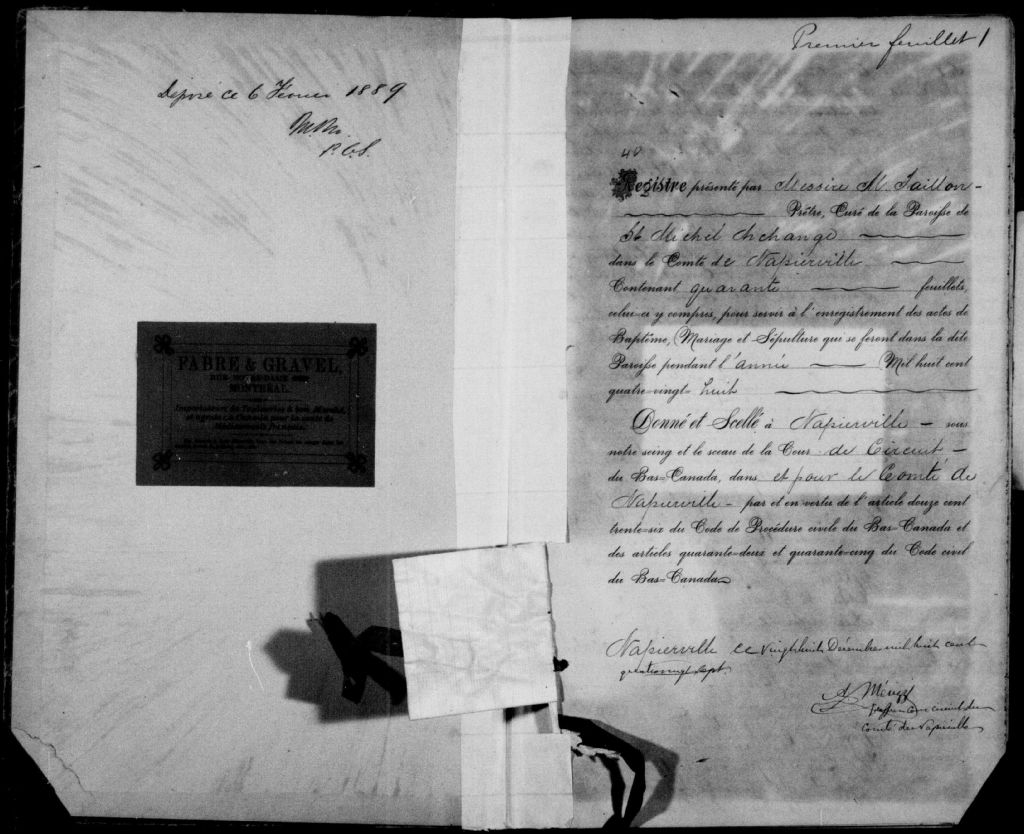 Déposé ce 6 Février 1889
P.C.S.
FABRE & GRAVEL,
RUE NOTRE-DAME
MONTREAL.
Importateurs de Tapisseries à bon Marché,
Médicaments français.
Premier feuillet 1
40
Registre présenté par Messire M. Taillon
Prêtre, Curé de la Paroisse de
St Michel Archange
dans le Comté de Napierville
Contenant quarante feuillets,
celui-ci y compris, pour servir à l'enregistrement des actes de
Baptême, Mariage et Sépulture qui se feront dans la dite
Paroisse pendant l'année Mil huit cent
quatre-vingt- huit
Donné et Scellé à Napierville - sous
notre seing et le sceau de la Cour de Circuit -
du Bas-Canada, dans et pour le Comté de
Napierville - par et en vertu de l'article douze cent
trente-six du Code de Procédure civile du Bas-Canada et
des articles quarante-deux et quarante-cinq du Code civil
du Bas-Canada
Napierville ce vingt huit Décembre mil huit cent
quatre vingt sept.
Comté de Napierville